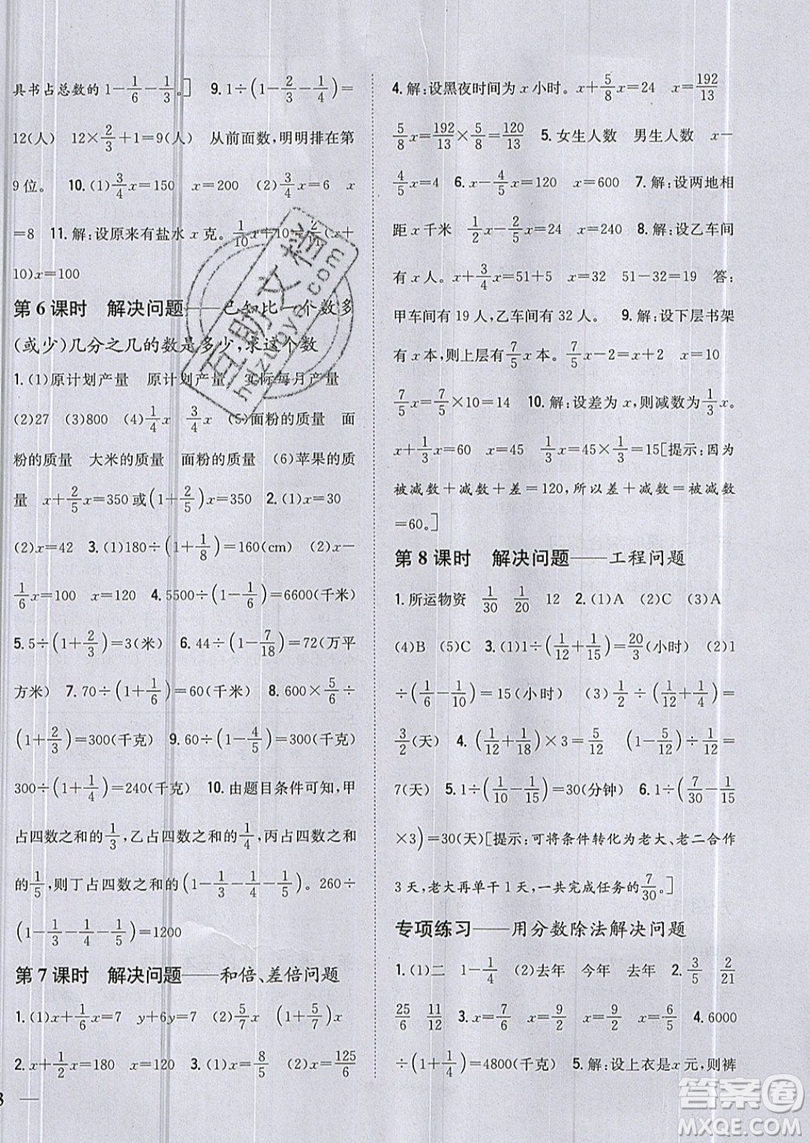 具书占总数的 1−1/6−1/3。] 9.1÷(1−2/3−1/4)=
12(人) 12×2/3+1=9(人) 从前面数,明明排在第
9位。 10.(1)3/4x=150 x=200 (2)6/7x=6 x
=8 11.解:设原来有盐水x克。1/10x+10=
10)x=100
第6课时 解决问题——已知比一个数多
(或少)几分之几的数是多少,求这个数
1.(1)原计划产量 原计划产量 实际每月产量
(2)27 (3)800 (4)1/4x 3/4x (5)面粉的质量 面
粉的质量 大米的质量 面粉的质量 (6)苹果的质
量 x+2/5x=350或(1+2/5)x=350 2.(1)x=10
(2)x=42 3.(1)x÷(1+1/8)x=180 x=160 (2)x−
1/6x=100 x=120 4.5500÷(1−1/6)=6600(千克)
5.5÷(1+2/3)=3(米) 6.44÷(1−7/18)=72(万平
方米) 7.70÷(1+1/6)=60(千米) 8.600×5/6÷
(1+2/3)=300(千克) 9.60÷(1−4/5)=300(千克)
300÷(1+1/4)=240(千克) 10.由题目条件可知,甲
占四数之和的1/3,乙占四数之和的1/4,丙占四数之和
的1/5,则丁占四数之和的(1−1/3−1/4−1/5)。260÷
(1−1/3−1/4−1/5)=1200
第7课时 解决问题——和倍、差倍问题
1.(1)x+1/6x=7 y+6y=7 (2)5/7x (1+5/7)x
2.x+1/2x=180 x=120 3.(1)x=8/5 (2)x=125/6
4.解:设黑夜时间为x小时。x+5/8x=24 x=192/13
5/8x=192/13×5/8=120/13 5.女生人数 男生人数 x−
4/5x=40 6.x−4/5x=120 x=600 7.解:设两地相
距x千米 1/2x−2/5x=11 x=110 8.解:设乙车间
有x人。x+3/4x=51+5 x=32 51−32=19 答:
甲车间有19人,乙车间有32人。 9.解:设下层书架
有x本,则原上层有7/5x本。7/5x−30=x+30−40
7/5x=x+20 x=50 10.解:设差为x,则减数为1/3
x。 x+1/3x=60 x=45 1/3x=45×1/3=15[提示:因为
被减数+减数+差=120,所以差+减数=被减数
=60。]
第8课时 解决问题——工程问题
1.所运物资 1/30 1/20 12 2.(1)A (2)C (3)A
(4)B (5)C 3.(1)1÷(1/12+1/15)=20/3(小时) (2)1
÷(1/6−1/10)=15(小时) (3)1/2÷(1/12+1/4)=
3/2(天) 4.(1/12+1/18)×3=5/12 (1−5/12)÷1/12=
7(天) 5.1÷(1/10−1/15)=30(分钟) 6.1÷(7/30−1/15
×3)=30(天)[提示:可将条件转化为老大、老二合作
3天,老大再单干1天,一共完成任务的7/30。]
专项练习——用分数除法解决问题
1.(1)二 1−1/4 (2)去年 今年 去年 2.3/5 2/21
25/6 11/12 3.x=7/6 x=9/2 x=9/2 x=6/5 4.6000
÷(1+1/4)=4800(千克) 5.解:设上衣是x元,则裤
3
互助文档
huzuoye.com
答案圈
MXQE.COM